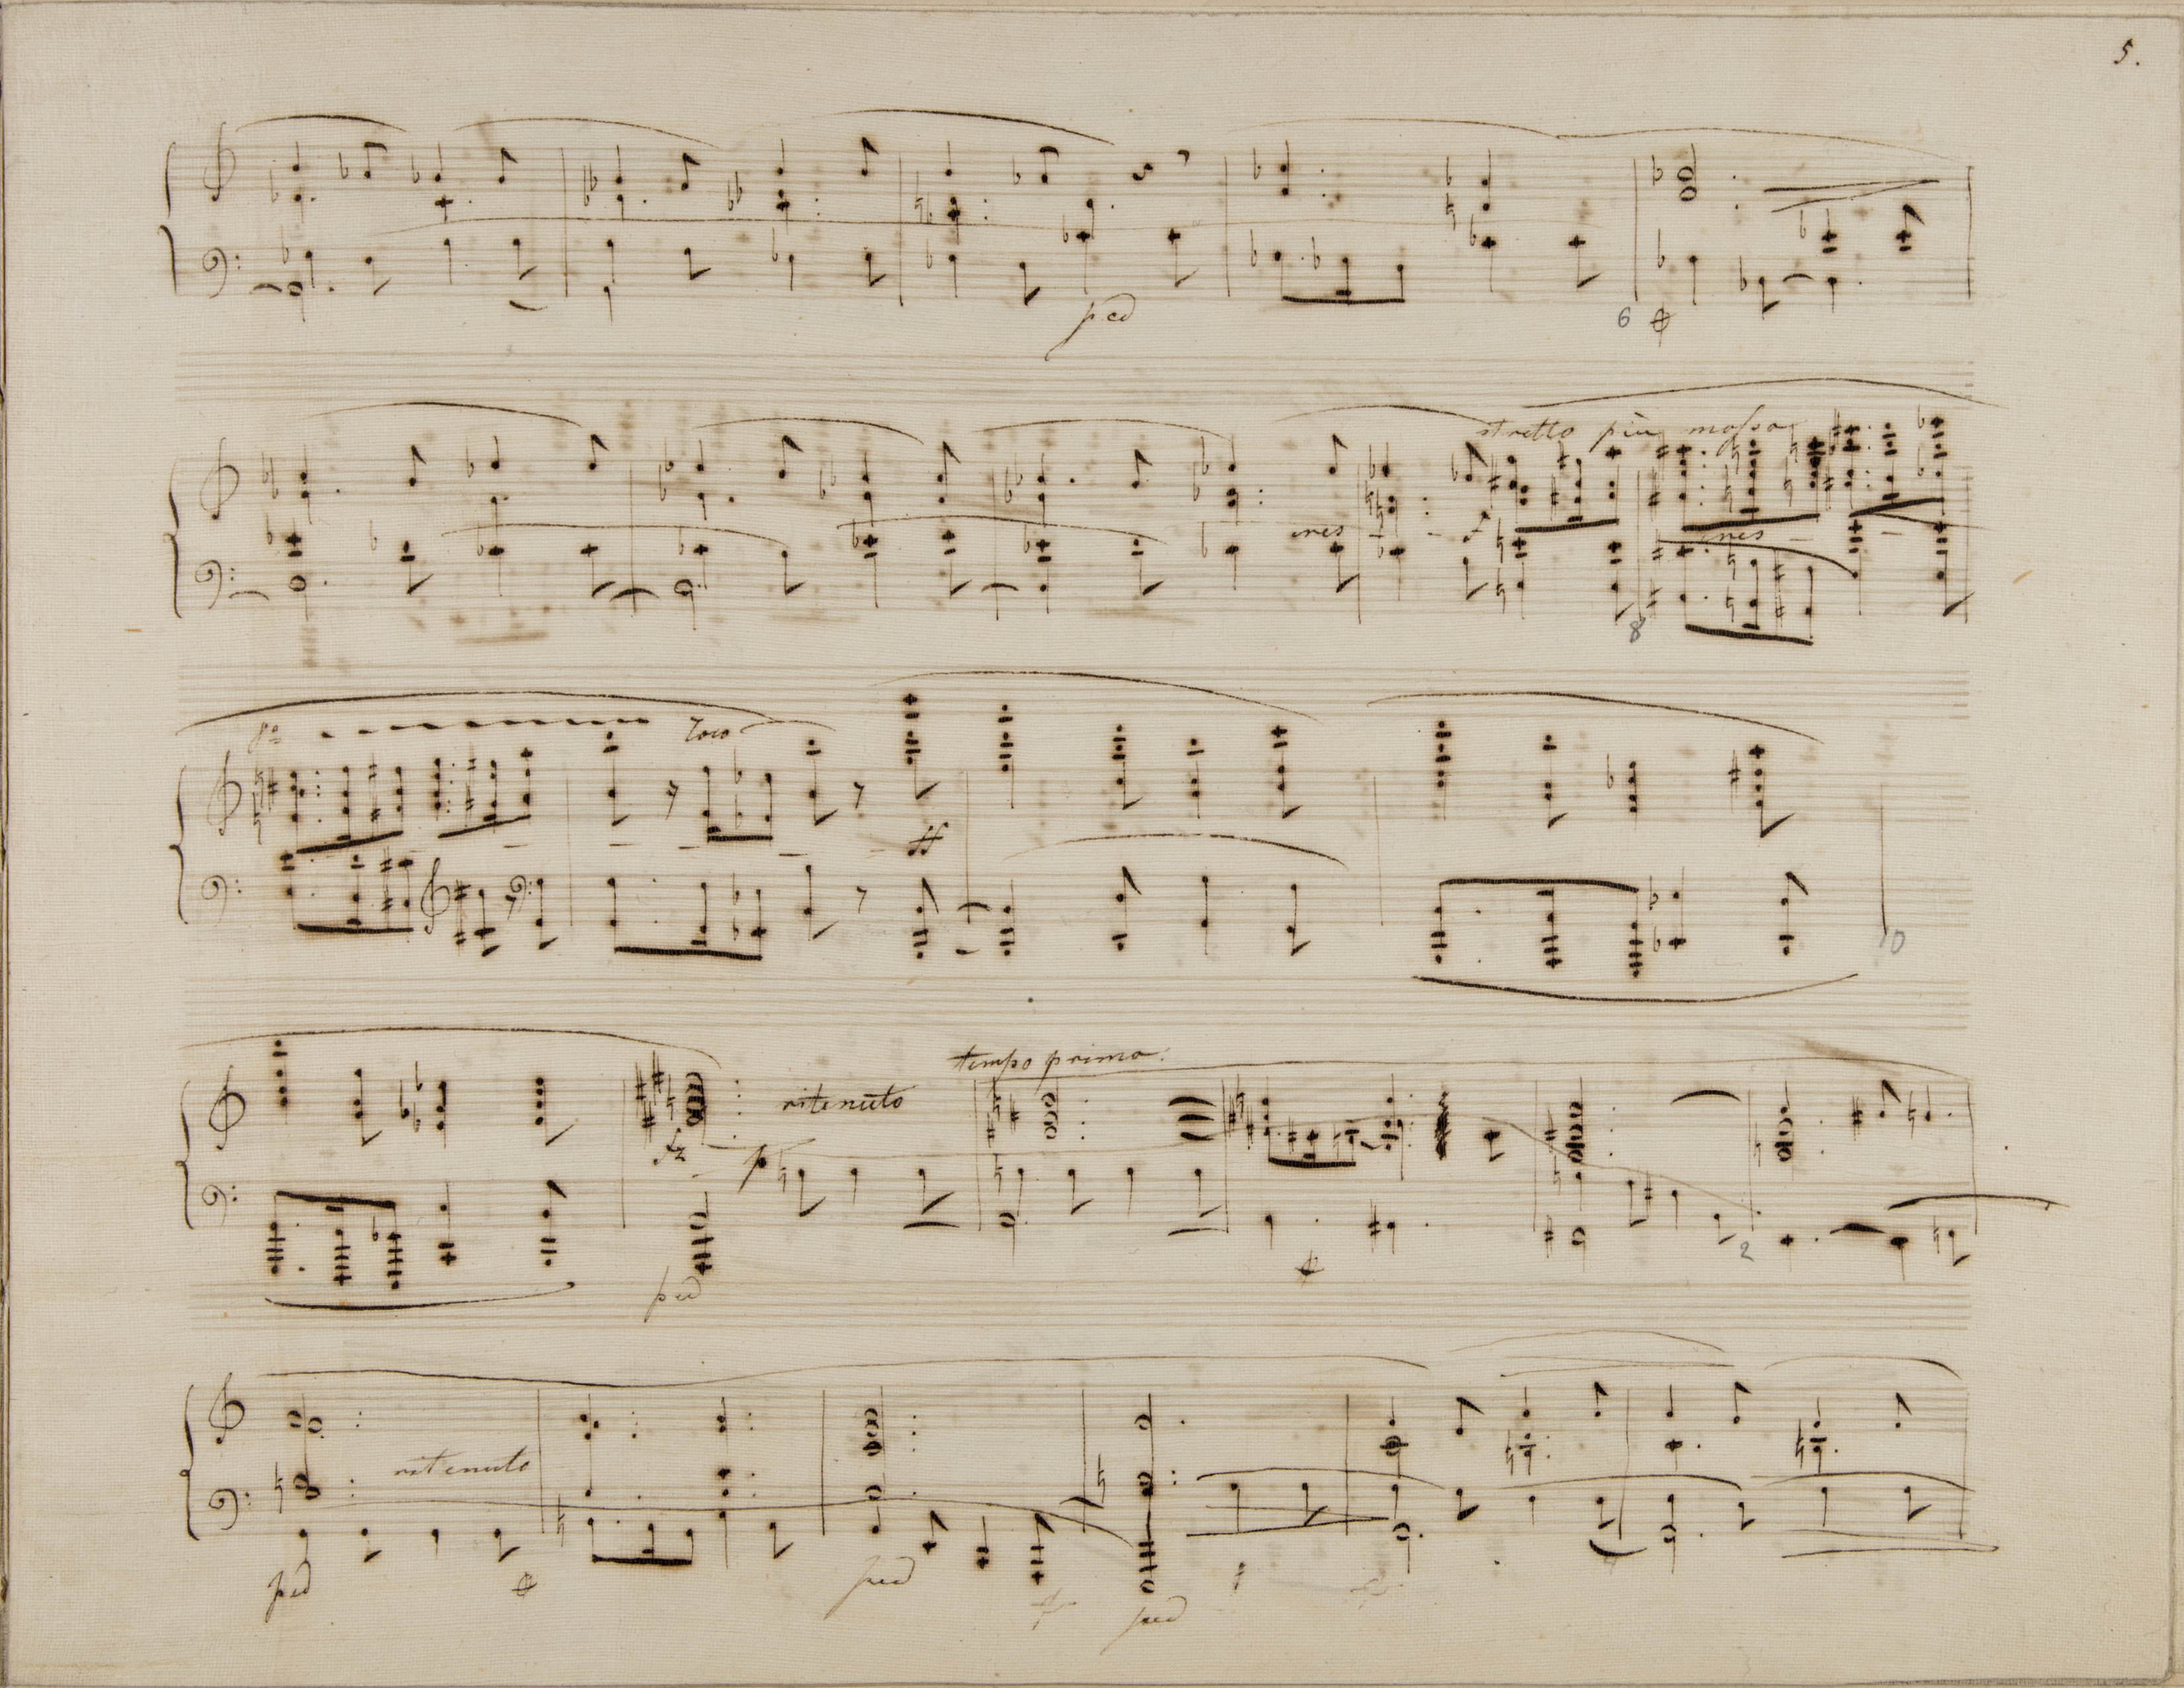 5.
ped
6
stretto più mosso
cres
cres
8
8va
loco
ff
10
tempo primo.
ritenuto
fz
p
ped
2
ritenuto
ped
ped
ped